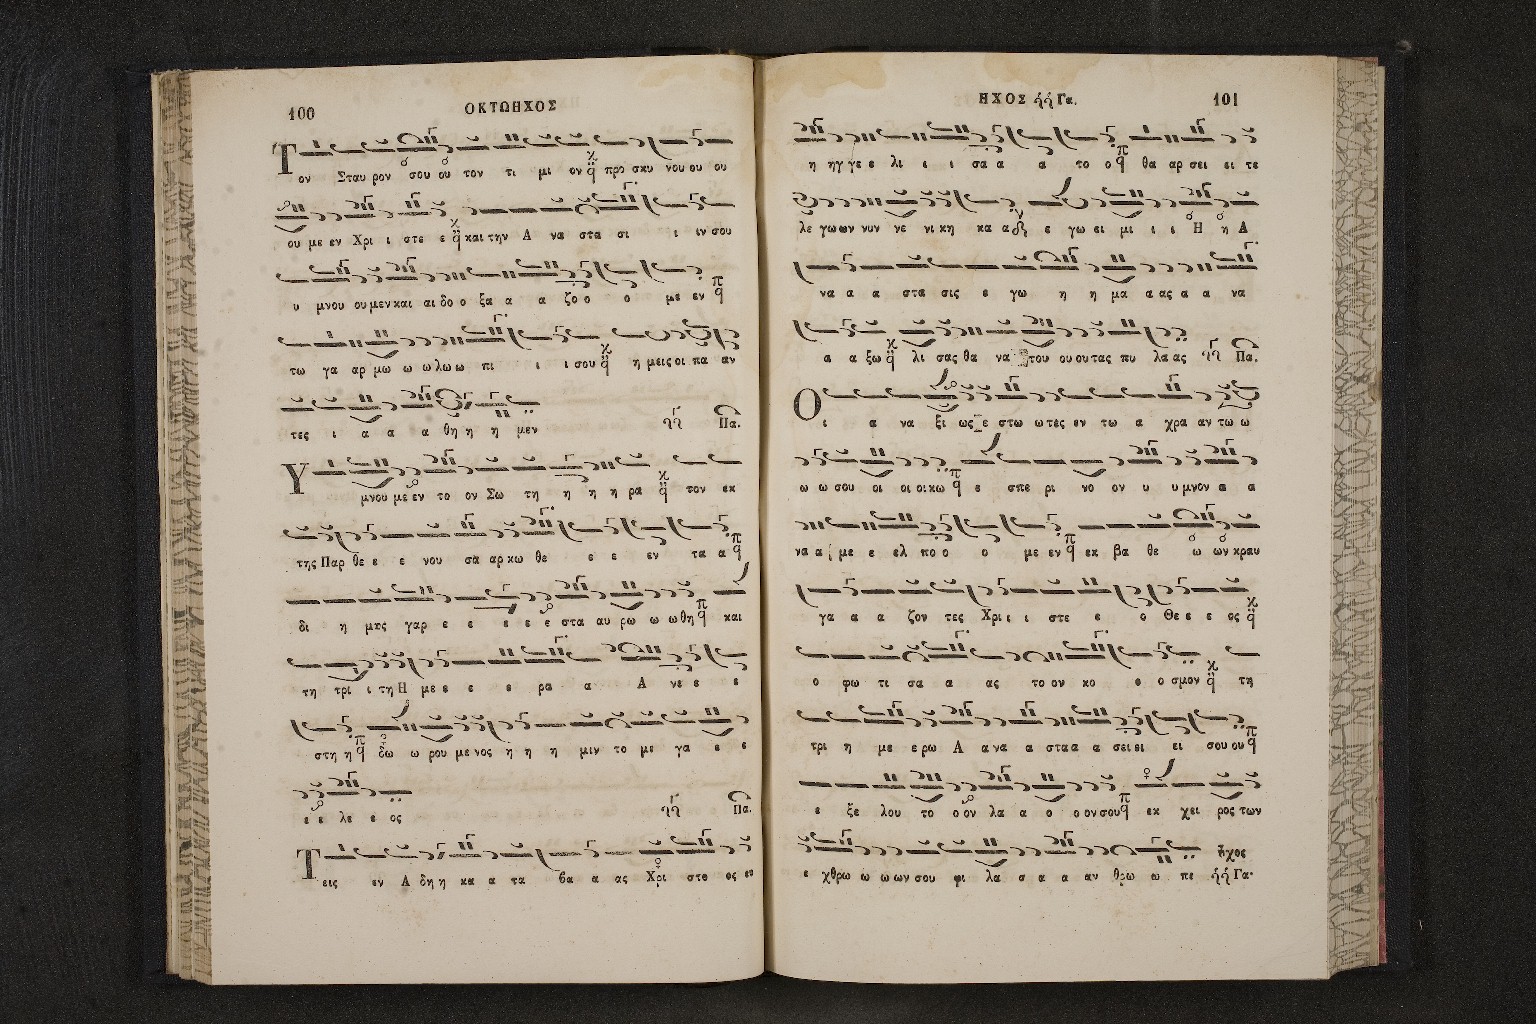 100 ΟΚΤΩΗΧΟΣ
Τον Σταυρον σου ου τον τι μι ον προ σκυ νου ου ου
ου με εν Χρι ι στε ε και την Α να στα σι ι ιν σου
υ μνου ου μεν και αι δο ο ξα α α ζο ο ο με εν
τω γα αρ μω ω ω λω ω πι ι ι σου η μεις οι πα αν
τες ι α α α θη η η μεν Πα.
Υμνου με εν το ον Σω τη η η η ρα τον εκ
της Παρ θε ε ε νου σα αρ κω θε ε ε εν τα α
δι η μας γαρ ε ε ε ε ε στα αυ ρω ω ω θη και
τη τρι ι τη Η με ε ε ε ρα α Α νε ε ε
στη η δω ω ρου με νος η η η μιν το με γα ε ε
ε ε λε ε ος Πα.
Τεις εν Α δη η κα α τα βα α ας Χρι στο ος ευ
ΗΧΟΣ ἠἠ Γα. 101
η ηγ γε ε λι ι ι σα α α το ο θα αρ σει ει τε
λε γω ων νυν νε νι κη κα α ε γω ει μι ι ι Η η Α
να α α στα σις ε γω η η μα α ας α α να
α α ξω λι σας θα να του ου ου τας πυ λα ας Πα.
Οι α να ξι ως ε στω ω τες εν τω α χρα αν τω ω
ω ω σου οι οι οι κω ε σπε ρι νο ον υ υ μνον α α
να α με ε ελ πο ο ο με εν εκ βα θε ω ων κραυ
γα α α ζον τες Χρι ι ι στε ε ο Θε ε ε ος
ο φω τι σα α α ας το ον κο ε ο σμον τη
τρι η με ε ρω Α α να α στα α α σει ει ει σου ου
ε ξε λου το ο ον λα α ο ο ον σου εκ χει ρος των
ε χθρω ω ω ων σου φι λα σ α α αν θρω ω πε ἦχος ἠἠ Γα·